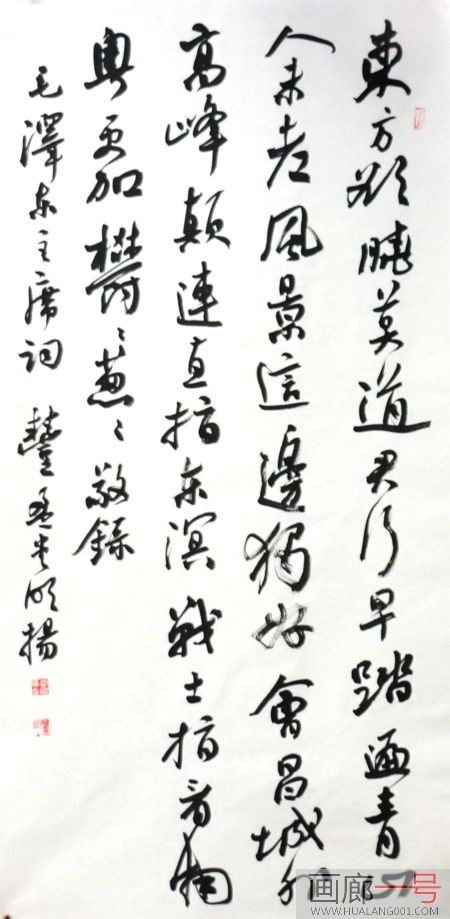 東方欲曉莫道君行早踏遍青山
人未老風景這邊獨好會昌城外
高峰顛連直指东溟戰士指看南
粵更加欝〻葱〻敬錄
毛澤东主席詞
画廊一号
WWW.HUALANG001.COM